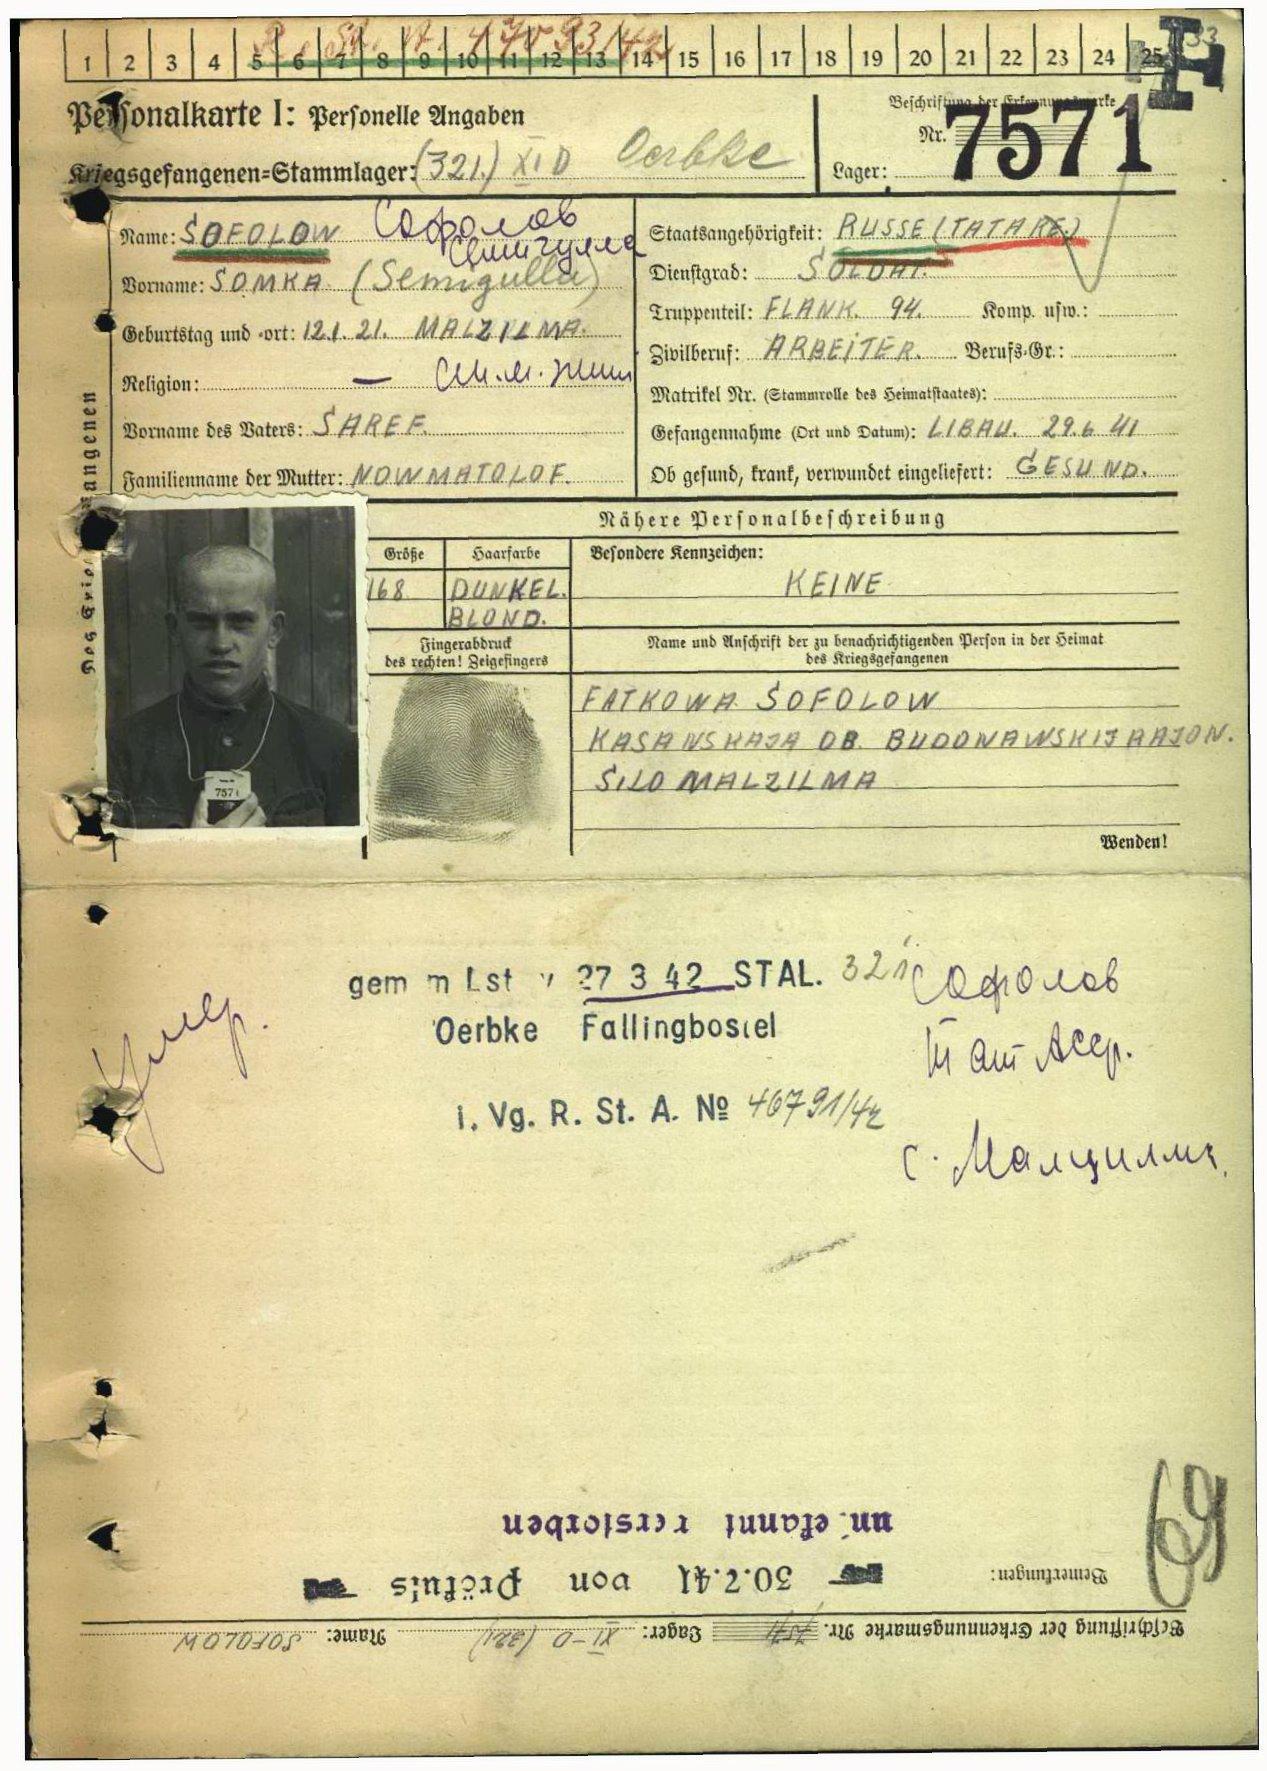 R. St. A. 47093/42
1 2 3 4 5 6 7 8 9 10 11 12 13 14 15 16 17 18 19 20 21 22 23 24 25
Personalkarte I: Personelle Angaben
Kriegsgefangenen=Stammlager: (321.) XI D Oerbke
Beschriftung der Erkennungsmarke
Nr. 7571
Lager:
Name: SOFOLOW Софолов
Семигулла
Vorname: SOMKA (Semigulla)
Geburtstag und -ort: 12.1.21. MALZILMA.
Religion: —
Vorname des Vaters: SAREF.
Familienname der Mutter: NOWMATOLOF.
Staatsangehörigkeit: RUSSE (TATARE)
Dienstgrad: SOLDAT.
Truppenteil: FLANK. 94. Komp. usw.:
Zivilberuf: ARBEITER. Berufs-Gr.:
Matrikel Nr. (Stammrolle des Heimatstaates):
Gefangennahme (Ort und Datum): LIBAU. 29.6 41
Ob gesund, krank, verwundet eingeliefert: GESUND.
Nähere Personalbeschreibung
Größe Haarfarbe Besondere Kennzeichen:
168 DUNKEL. KEINE
BLOND.
Fingerabdruck
des rechten! Zeigefingers
Name und Anschrift der zu benachrichtigenden Person in der Heimat
des Kriegsgefangenen
7571
FATKOWA SOFOLOW
KASANSKAJA OB. BUDONAWSKIJ RAJON.
SILO MALZILMA
Wenden!
gem m Lst v 27 3 42 STAL. 321
Oerbke Fallingbostel
i. Vg. R. St. A. № 46791/42
Умер.
Софолов
Тат Асср.
с. Малцилма
69
Beschriftung der Erkennungsmarke Nr. 7571 Lager: XI-D (321) Name: SOFOLOW
Bemerkungen: 30.7.41 von Prökuls
un ekannt verstorben